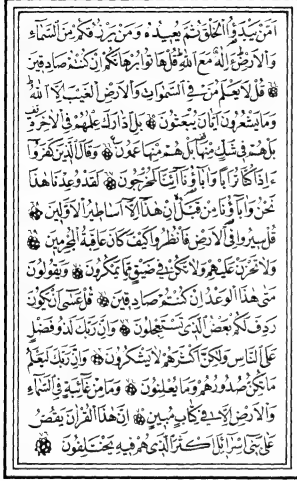 اَمَّنْ يَبْدَؤُا الْخَلْقَ ثُمَّ يُعِيدُهُ وَمَنْ يَرْزُقُكُمْ مِنَ السَّمَاءِ
وَالْاَرْضِ ءَاِلٰهٌ مَعَ اللّٰهِ قُلْ هَاتُوا بُرْهَانَكُمْ اِنْ كُنْتُمْ صَادِقِينَ
قُلْ لَا يَعْلَمُ مَنْ فِي السَّمٰوَاتِ وَالْاَرْضِ الْغَيْبَ اِلَّا اللّٰهُ
وَمَا يَشْعُرُونَ اَيَّانَ يُبْعَثُونَ بَلِ ادَّارَكَ عِلْمُهُمْ فِي الْاٰخِرَةِ
بَلْ هُمْ فِي شَكٍّ مِنْهَا بَلْ هُمْ مِنْهَا عَمُونَ وَقَالَ الَّذِينَ كَفَرُوا
ءَاِذَا كُنَّا تُرَابًا وَاٰبَاؤُنَا اَئِنَّا لَمُخْرَجُونَ لَقَدْ وُعِدْنَا هٰذَا
نَحْنُ وَاٰبَاؤُنَا مِنْ قَبْلُ اِنْ هٰذَا اِلَّا اَسَاطِيرُ الْاَوَّلِينَ
قُلْ سِيرُوا فِي الْاَرْضِ فَانْظُرُوا كَيْفَ كَانَ عَاقِبَةُ الْمُجْرِمِينَ
وَلَا تَحْزَنْ عَلَيْهِمْ وَلَا تَكُنْ فِي ضَيْقٍ مِمَّا يَمْكُرُونَ وَيَقُولُونَ
مَتٰى هٰذَا الْوَعْدُ اِنْ كُنْتُمْ صَادِقِينَ قُلْ عَسٰى اَنْ يَكُونَ
رَدِفَ لَكُمْ بَعْضُ الَّذِي تَسْتَعْجِلُونَ وَاِنَّ رَبَّكَ لَذُو فَضْلٍ
عَلَى النَّاسِ وَلٰكِنَّ اَكْثَرَهُمْ لَا يَشْكُرُونَ وَاِنَّ رَبَّكَ لَيَعْلَمُ
مَا تُكِنُّ صُدُورُهُمْ وَمَا يُعْلِنُونَ وَمَا مِنْ غَائِبَةٍ فِي السَّمَاءِ
وَالْاَرْضِ اِلَّا فِي كِتَابٍ مُبِينٍ اِنَّ هٰذَا الْقُرْاٰنَ يَقُصُّ
عَلٰى بَنِي اِسْرَائِلَ اَكْثَرَ الَّذِي هُمْ فِيهِ يَخْتَلِفُونَ